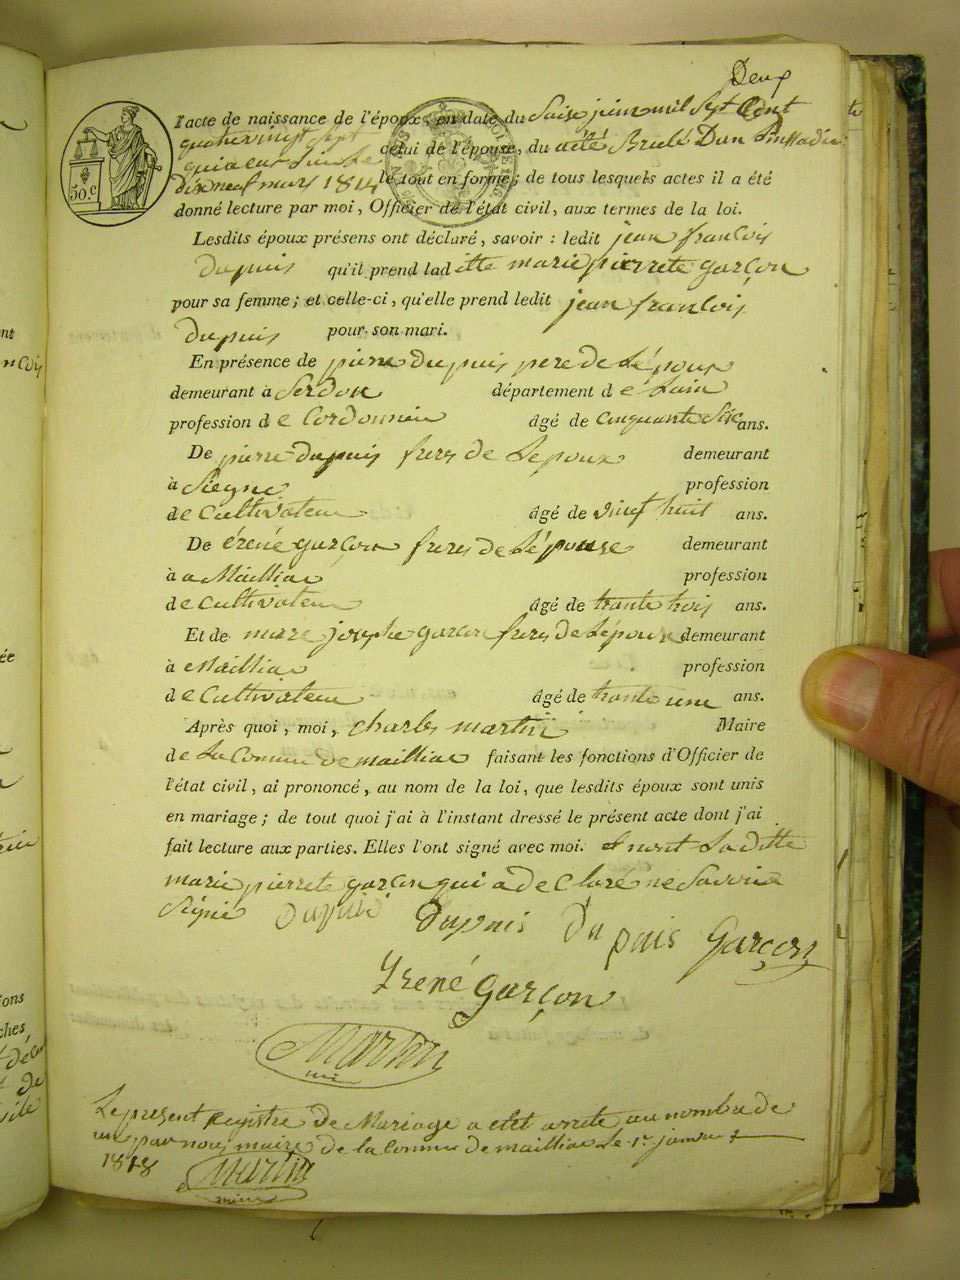 Deux
50.c
l'acte de naissance de l'époux, en date du Saise juin mil Sept Cent
quatrevingt sept
celui de l'épouse, du acté Brulé Dun
qui a eut
dix neuf mars 1814 le tout en forme; de tous lesquels actes il a été
donné lecture par moi, Officier de l'état civil, aux termes de la loi.
Lesdits époux présens ont déclaré, savoir: ledit jean francois
Dupuis qu'il prend ladite marie pierrete garçon
pour sa femme; et celle-ci, qu'elle prend ledit jean francois
dupuis pour son mari.
En présence de pierre Dupuis pere de Lépoux
demeurant a Serdon département de Lain
profession de Cordonnier âgé de cinquante Sixe ans.
De pierre dupuis frere de Lepoux demeurant
à profession
de Cultivateur âgé de vint huit ans.
De érené garçon frere de Lépouse demeurant
à a Maillia profession
de Cultivateur âgé de trante trois ans.
Et de marie josephe garçon frere de Lépouse demeurant
à Maillia profession
de Cultivateur âgé de trante une ans.
Après quoi, moi, charles martin Maire
de La Comune de maillia faisant les fonctions d'Officier de
l'état civil, ai prononcé, au nom de la loi, que lesdits époux sont unis
en mariage; de tout quoi j'ai à l'instant dressé le présent acte dont j'ai
fait lecture aux parties. Elles l'ont signé avec moi. Laditte
marie pierrete garçon qui a declaré ne Savoir
Signé Dupuis dupuis Du puis Garçon
Irené Garçon
Martin
Le present Registre de Mariage a etet arrete au nombre de
un par nous maire de la Comune de maillia Le 1er janvier
1818 Martin
maire